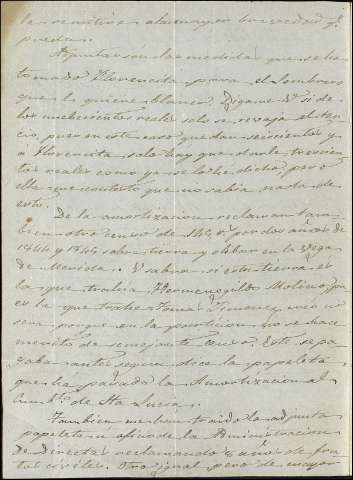 le remitire a la mayor brevedad qe.
pueda.
Adjuntas son las medidas que se ha
tomado Florencita para el sombrero
que lo quiere blanco. Digame V. si de
los reales solo se rebaja el ter
cio, pues en este caso quedan seiscientos y
a Florencita solo hay que darle trescien
tos reales como ya se lo he dicho, pero
ella que contesto que no sabia nada de
esto.
De la amortizacion reclaman tam
bien otro censo de 144 rs. por dos años de
1844 y 1845 sobre tierra y olibar en la Vega
de Merida. V. sabra si esta tierra es
la que trahia Hermenegildo Molina, pr.
es la que trahe Tomas Timenez, creo no
sera porque en la particion no se hace
merito de semejante censo. Este se pa
gaba antes segun dice la papeleta
que ha pasado la Amortizacion al
de Sta. Lucia.
Tambien me han traido la adjunta
papeleta u oficio de la Administracion
de Directas reclamando 2 años de fru
tos civiles. Otro igual pero de mayor